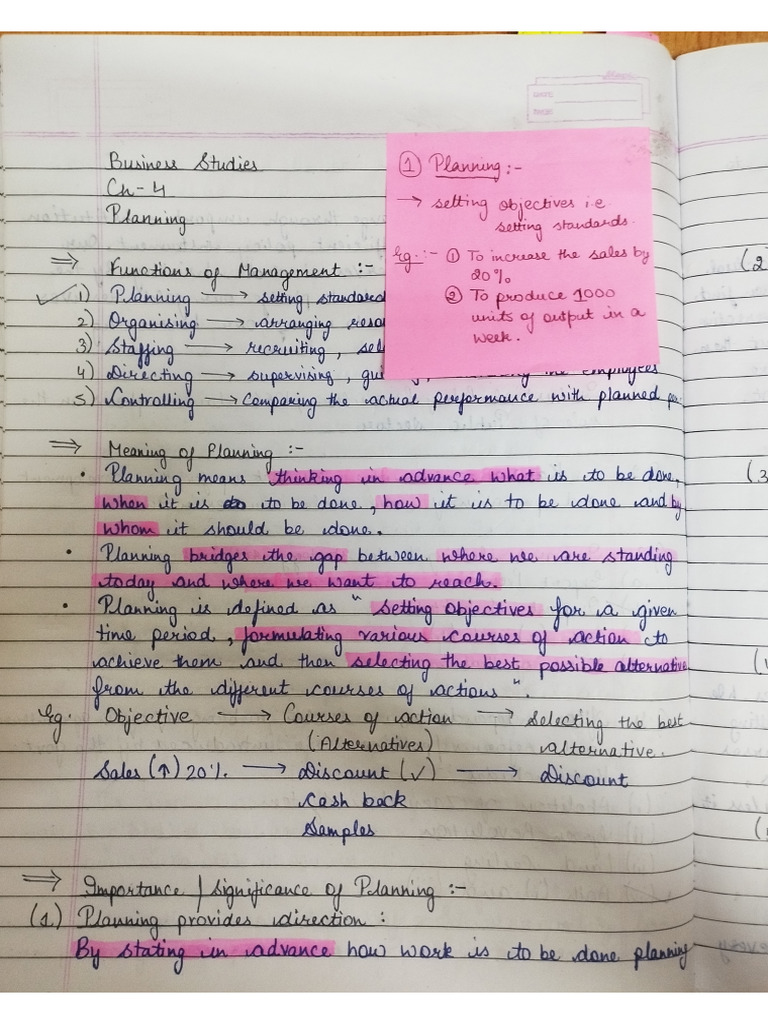 DATE
PAGE
Business Studies
Ch- 4
Planning
① Planning :-
→ setting objectives i.e
setting standards.
Eg. :- ① To increase the sales by
20%
② To produce 1000
units of output in a
week.
⇒ Functions of Management :-
✓ 1) Planning → setting standard
2) Organising → arranging
3) Staffing → recruiting,
4) Directing → supervising, the employees
5) Controlling → Comparing the actual performance with planned
⇒ Meaning of Planning :-
• Planning means thinking in advance what is to be done,
when it is to be done, how it is to be done and by
whom it should be done.
• Planning bridges the gap between where we are standing
today and where we want to reach.
• Planning is defined as " setting objectives for a given
time period, formulating various courses of action to
achieve them and then selecting the best possible alternative
from the different courses of actions ".
Eg. Objective → Courses of action → Selecting the best
(Alternatives) alternative.
Sales (↑) 20% → Discount (✓) → Discount
Cash back
Samples
⇒ Importance / Significance of Planning :-
(1.) Planning provides direction :
By stating in advance how work is to be done planning